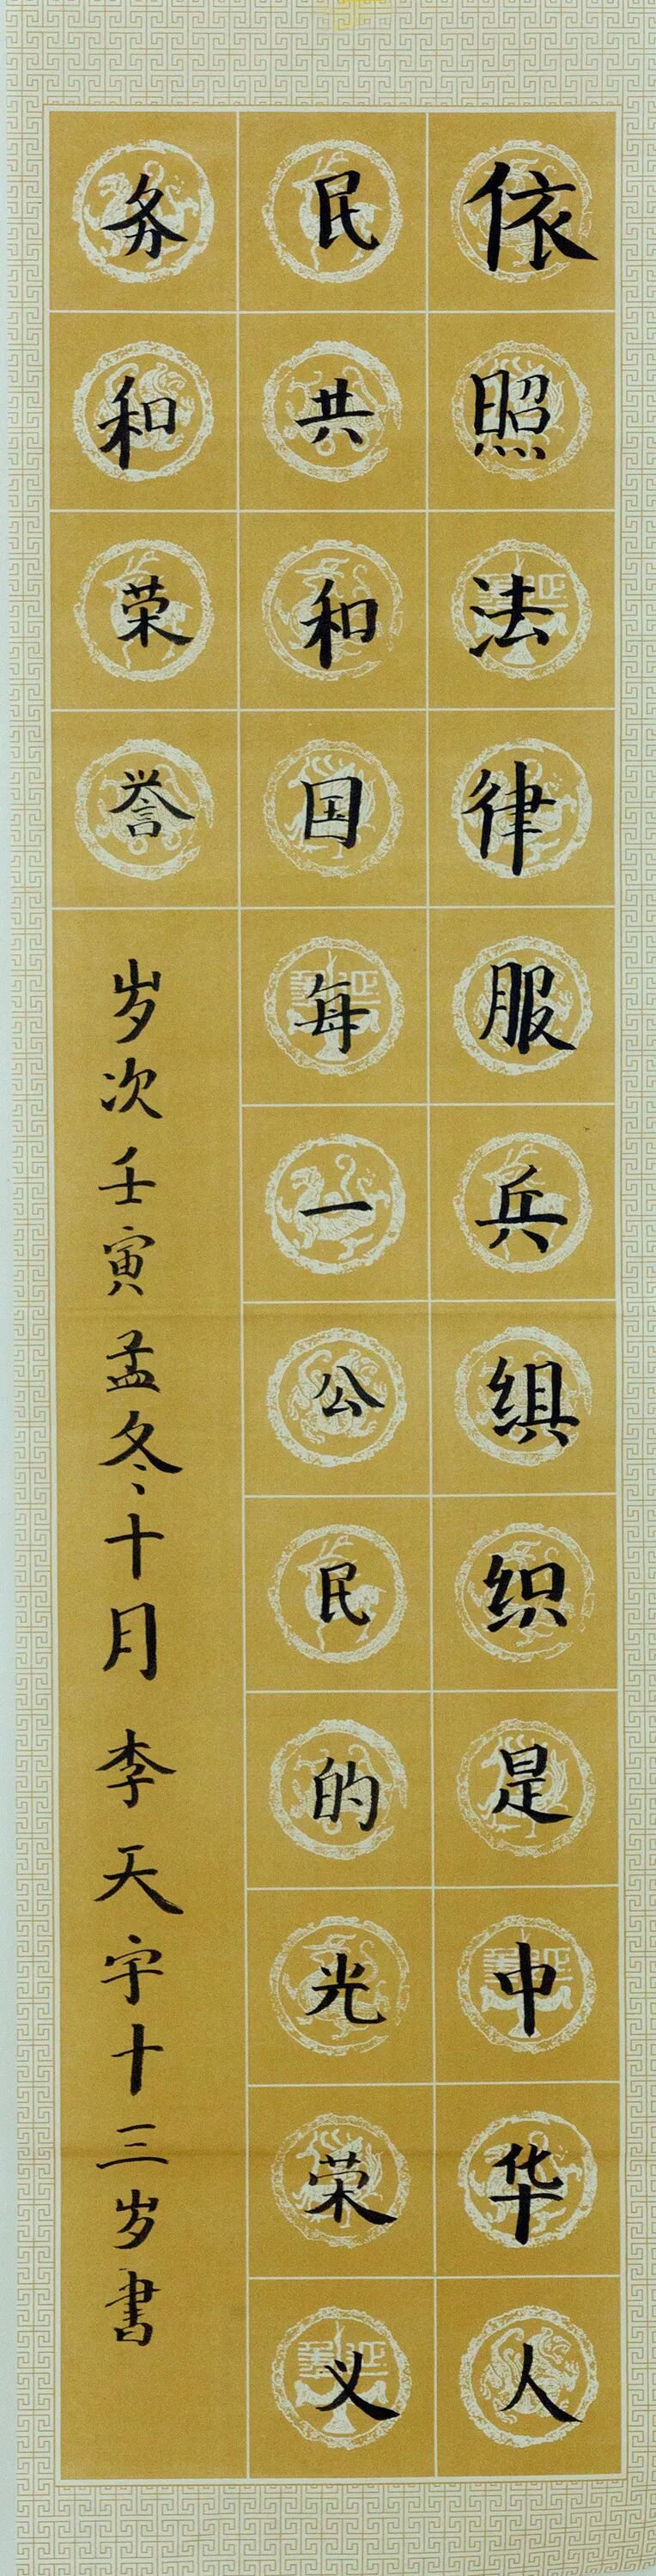 依照法律服兵组织是中华人
民共和国每一公民的光荣义
务和荣誉
岁次壬寅孟冬十月李天宇十三岁書